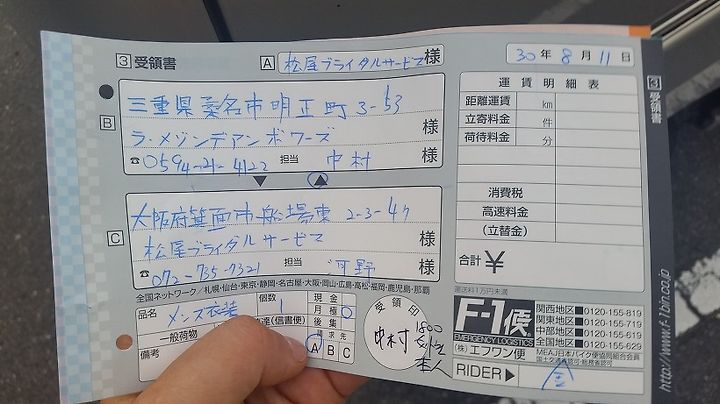 3 受領書
A 松尾ブライダルサービス 様
30 年 8 月 11 日
B
三重県桑名市明正町 3-53
ラ・メゾンデアンボワーズ 様
☎0594-21-4122 担当 中村 様
▼ ▲
C
大阪府箕面市船場東 2-3-47
松尾ブライダルサービス 様
☎072-735-7321 担当 河野 様
運賃明細表
距離運賃 km
立寄料金 件
荷待料金 分
消費税
高速料金
(立替金)
合計 ¥
運送料1万円未満
3 受領書
http://www.f-1bin.co.jp
全国ネットワーク/札幌・仙台・東京・静岡・名古屋・大阪・岡山・広島・高松・福岡・鹿児島・那覇
品名 メンズ衣装
個数 1
現金
月極
後集
請求先
A B C
一般荷物
達(信書便)
備考
受領印
中村
1800
本人
F-1便
EMERGENCY LOGISTICS
(株)エフワン便
関西地区 0120-155-819
関東地区 0120-155-719
中部地区 0120-155-619
全国地区 0120-155-629
MEAJ日本バイク便協同組合会員
RIDER▶